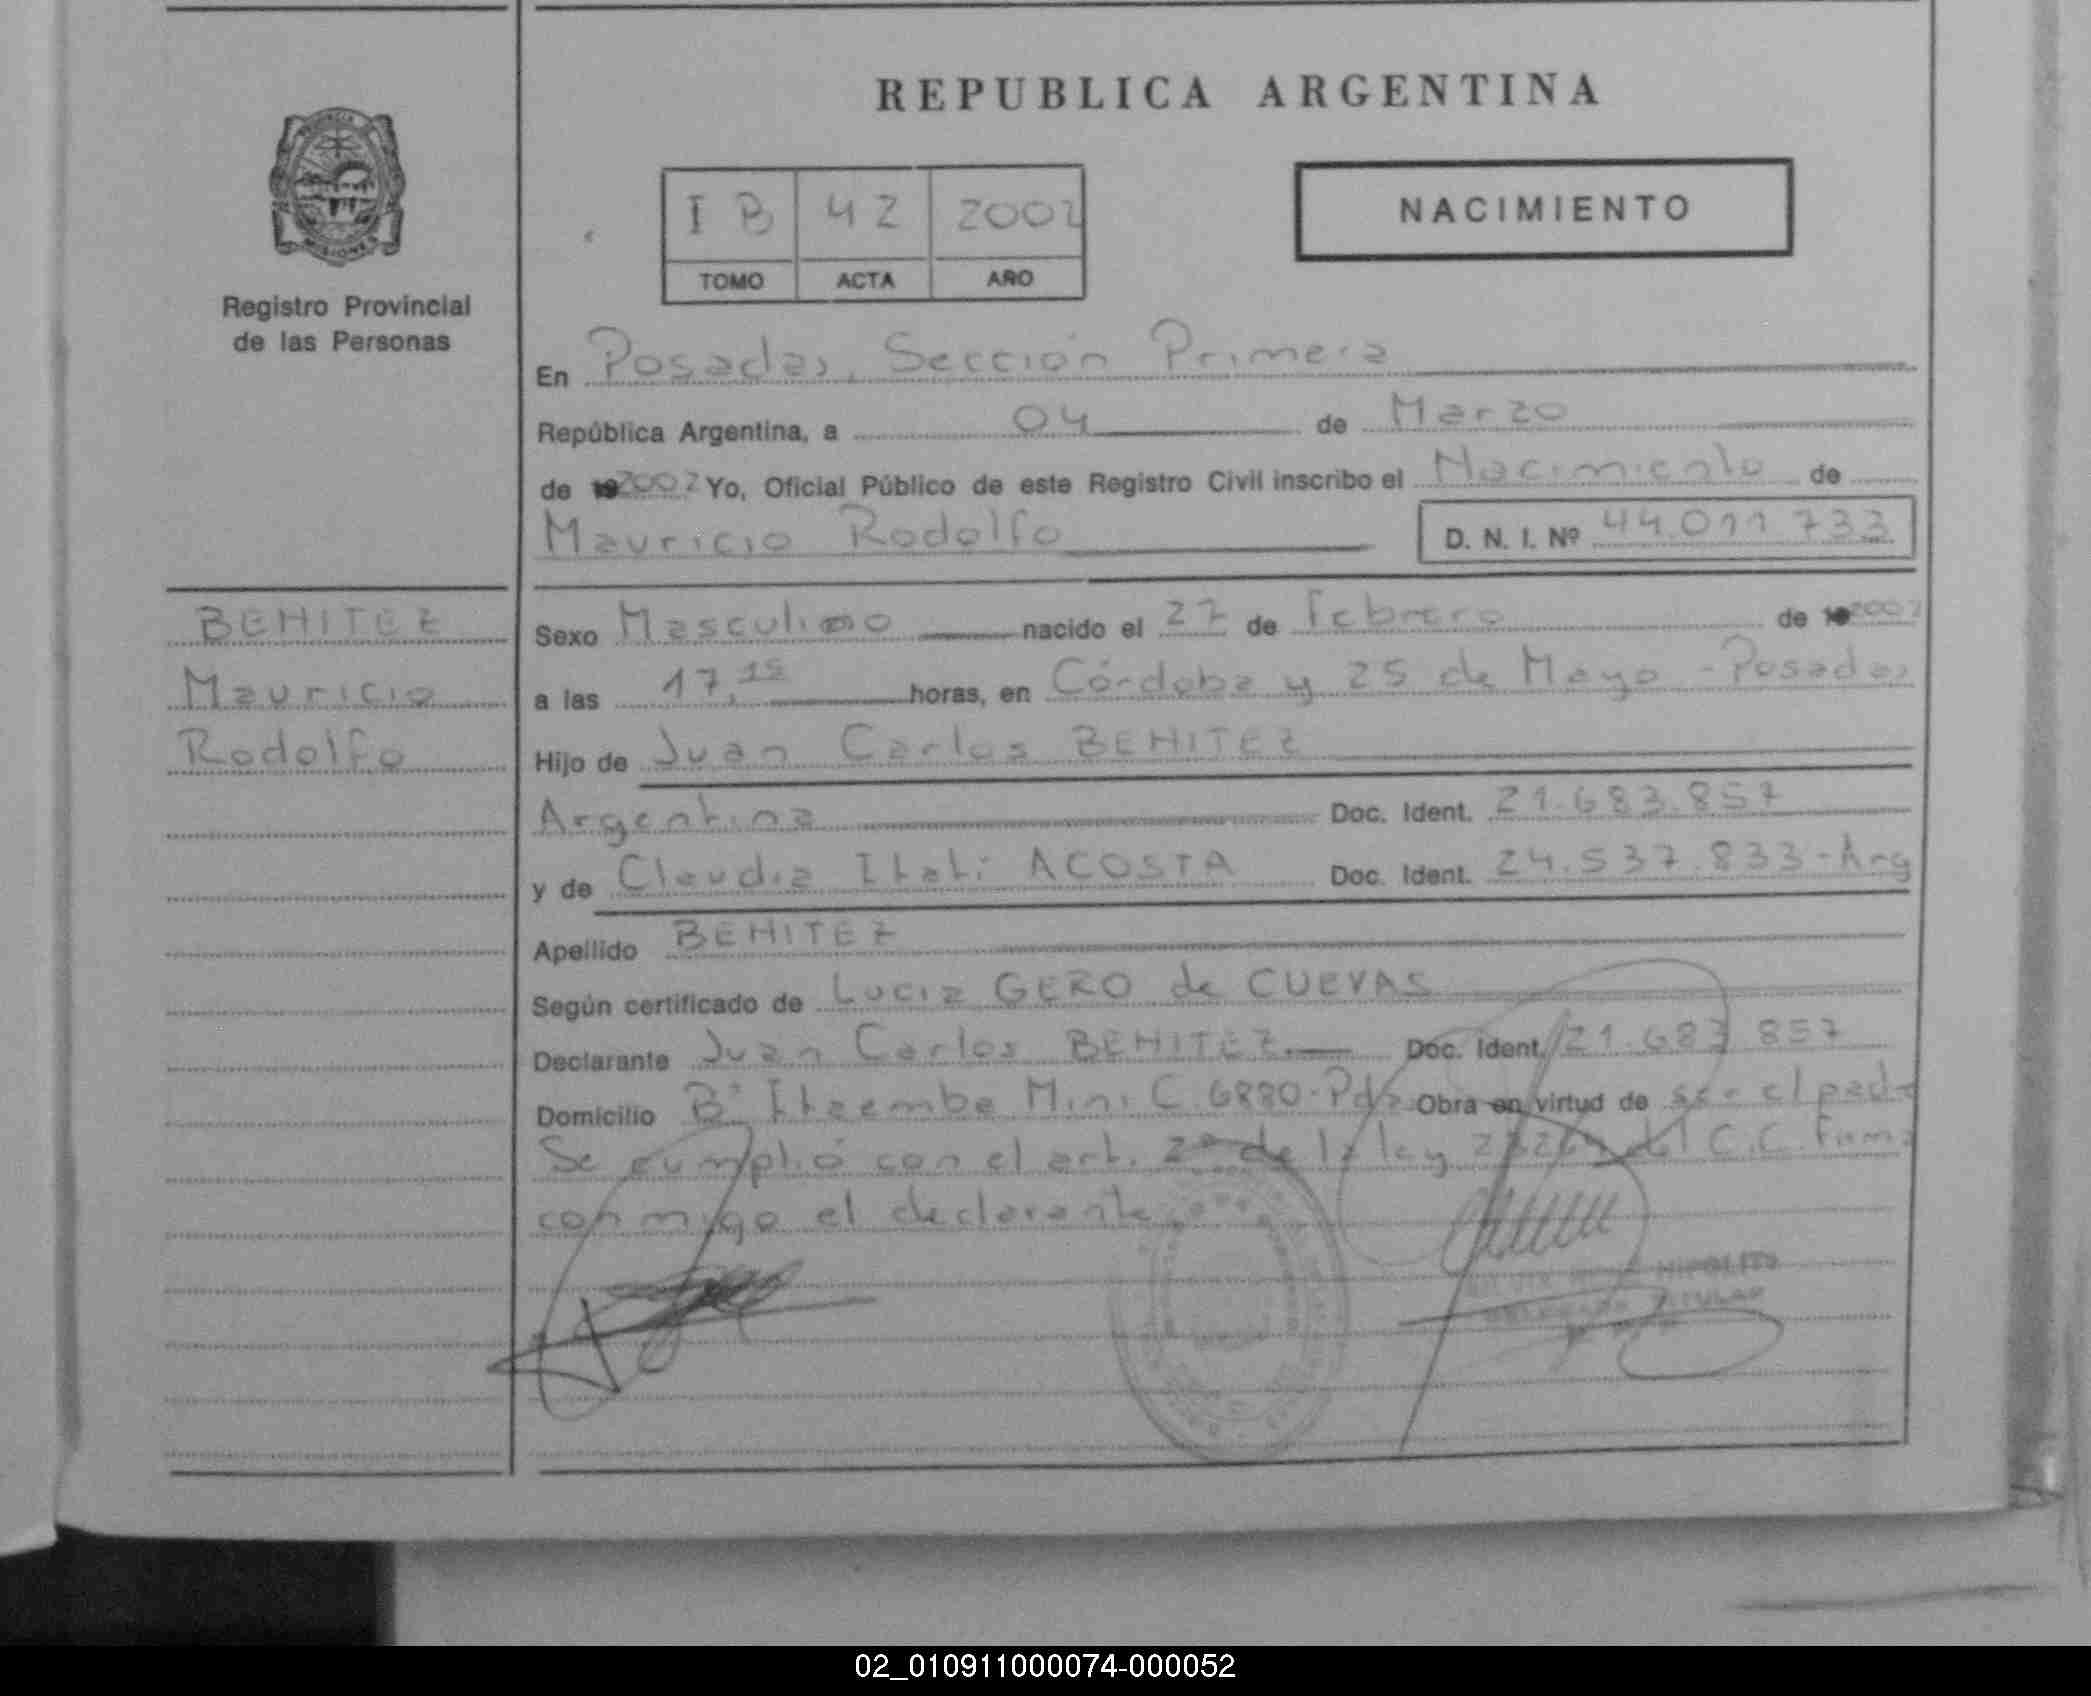 REPUBLICA ARGENTINA
PROVINCIA DE
MISIONES
Registro Provincial
de las Personas
I B 42 2002
TOMO ACTA AÑO
NACIMIENTO
En Posadas, Sección Primera
República Argentina, a 04 de Marzo
de 19 2002 Yo, Oficial Público de este Registro Civil inscribo el Nacimiento de
Mauricio Rodolfo D. N. I. Nº 44.011.733
BENITEZ
Mauricio
Rodolfo
Sexo Masculino nacido el 27 de Febrero de 19 2002
a las 17,15 horas, en Córdoba y 25 de Mayo - Posadas
Hijo de Juan Carlos BENITEZ
Argentina Doc. Ident. 21.683.857
y de Claudia Itatí ACOSTA Doc. Ident. 24.537.833-Arg
Apellido BENITEZ
Según certificado de Lucia GERO de CUEVAS
Declarante Juan Carlos BENITEZ Doc. Ident. 21.683.857
Domicilio Bº Itaembe Mini C.6880-Pdas Obra en virtud de ser el padre
Se cumplió con el art. 2º de la ley del C.C. Firma
conmigo el declarante
HIPOLITO
DELEGADO TITULAR
02_010911000074-000052